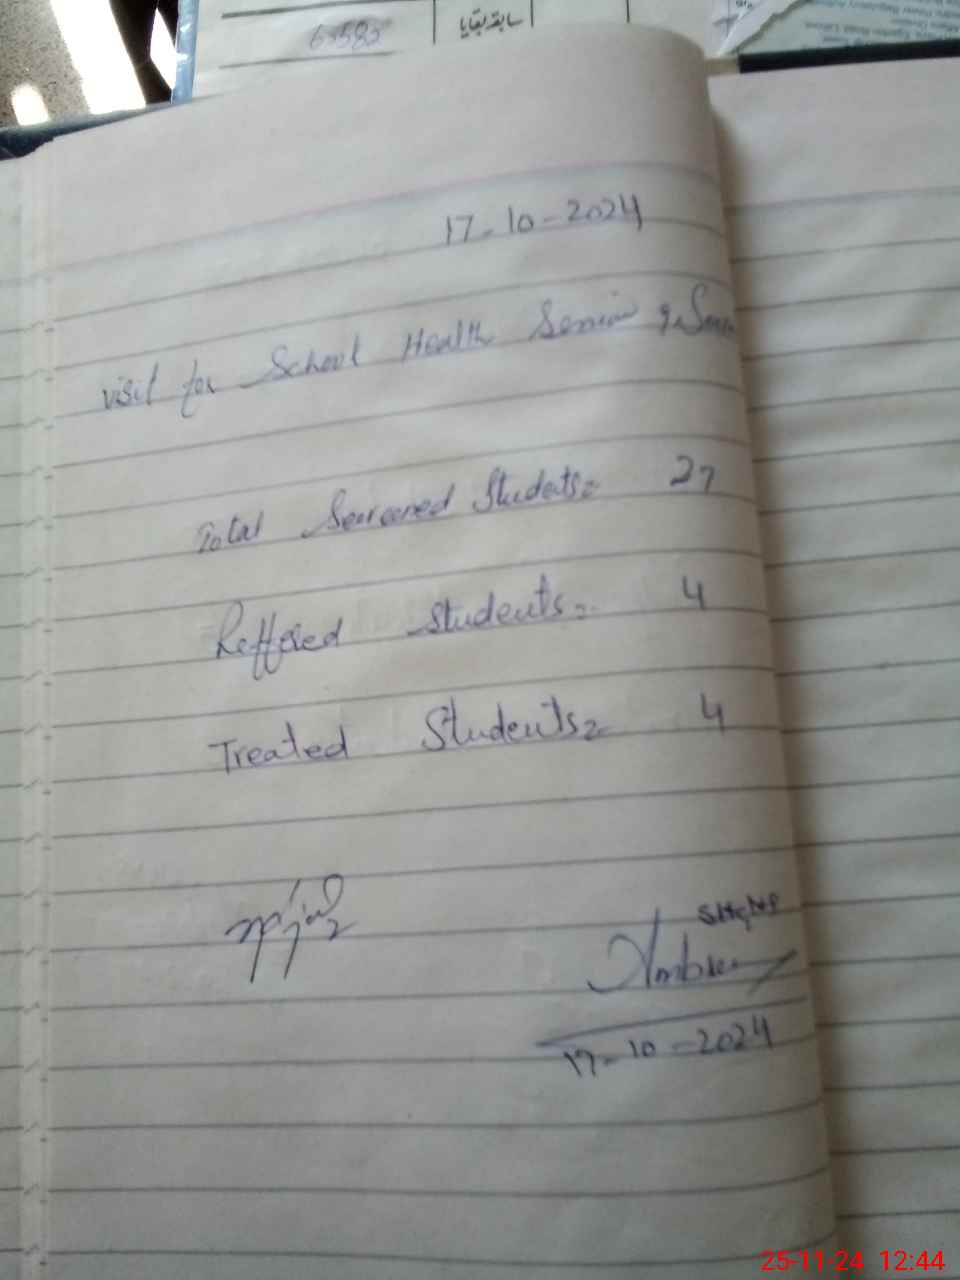 65585
سابقہ بقایا
17-10-2024
visit for School Health
Total Screened Students= 27
Reffered Students= 4
Treated Students= 4
17-10-2024
25-11-24 12:44